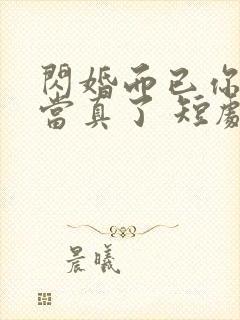 閃婚而已你
當真了 短劇
晨曦